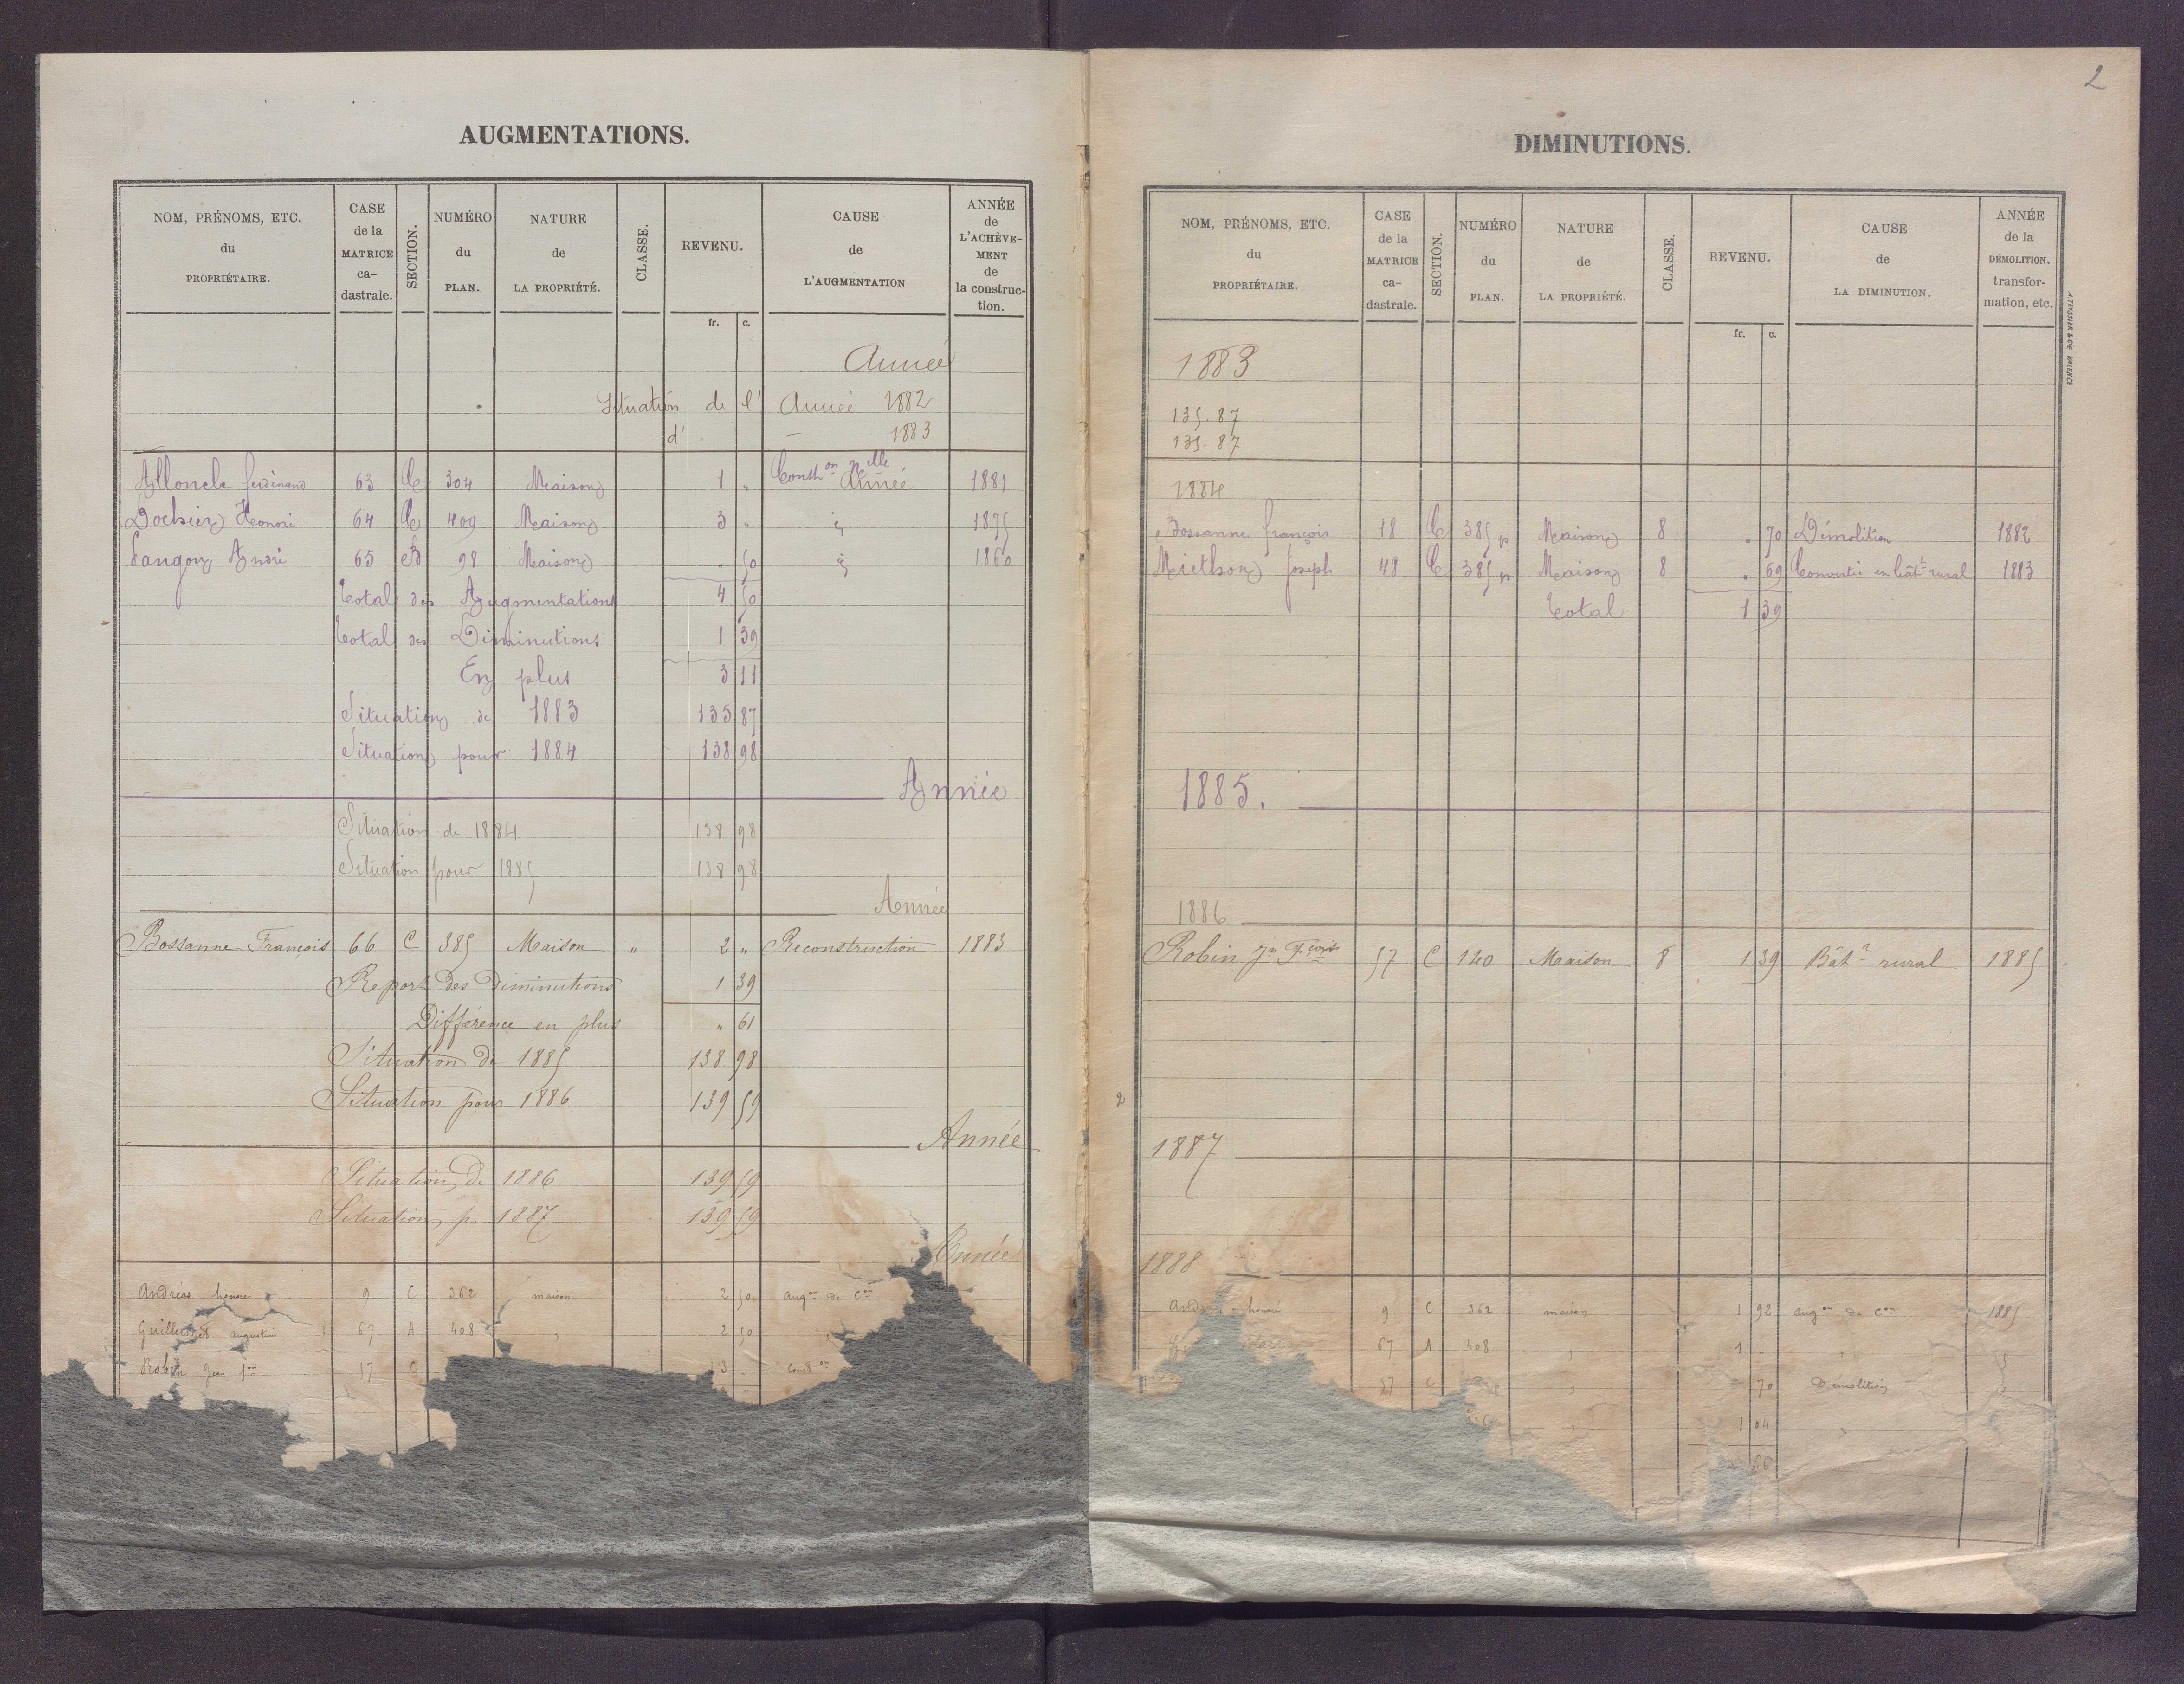 2
AUGMENTATIONS.
NOM, PRÉNOMS, ETC. du PROPRIÉTAIRE.
CASE de la MATRICE ca-dastrale.
SECTION.
NUMÉRO du PLAN.
NATURE de LA PROPRIÉTÉ.
CLASSE.
REVENU.
CAUSE de L'AUGMENTATION
ANNÉE de L'ACHÈVE-MENT de la construc-tion.
fr. c.
Année
Situation de l' Année 1882
d' — 1883
Année
Alloncle ferdinand 63 C 304 Maison 1 „ Constron nelle 1881
Dochier Honoré 64 C 409 Maison 3 „ 1875
Sangoy André 65 B 98 Maison . 50 1860
Total des Augmentations 4 50
Total des Diminutions 1 39
En plus 3 11
Situation de 1883 135 87
Situation pour 1884 138 98
Année
Situation de 1884 138 98
Situation pour 1885 138 98
Année
Bossanne François 66 C 385 Maison „ 2 „ Reconstruction 1883
Report des Diminutions 1 39
Différence en plus „ 61
Situation de 1885 138 98
Situation pour 1886 139 59
Année
Situation de 1886 139 59
Situation p. 1887 139 59
Année
Andréas honoré 9 C 362 maison 2 50 augon de Con
Guillermet augustin 67 A 408 „ 2 50
Robin Jean fois 57 C 3
DIMINUTIONS.
NOM, PRÉNOMS, ETC. du PROPRIÉTAIRE.
CASE de la MATRICE ca-dastrale.
SECTION.
NUMÉRO du PLAN.
NATURE de LA PROPRIÉTÉ.
CLASSE.
REVENU.
CAUSE de LA DIMINUTION.
ANNÉE de la DÉMOLITION. transfor-mation, etc.
fr. c.
1883
135.87
135.87
1884
Bossanne françois 18 C 385p Maison 8 „ 70 Démolition 1882
Miethon Joseph 48 C 385p Maison 8 „ 69 Convertie en bâtt rural 1883
Total 1 39
1885.
1886
Robin Jn Fçois 57 C 120 Maison 8 1 39 Bâtt rural 1885
2
1887
1888
honoré 9 C 362 maison 1 92 augon de Con 1885
67 A 408 „ 1 „
57 C „ 70 Démolition
„ 1 04 „